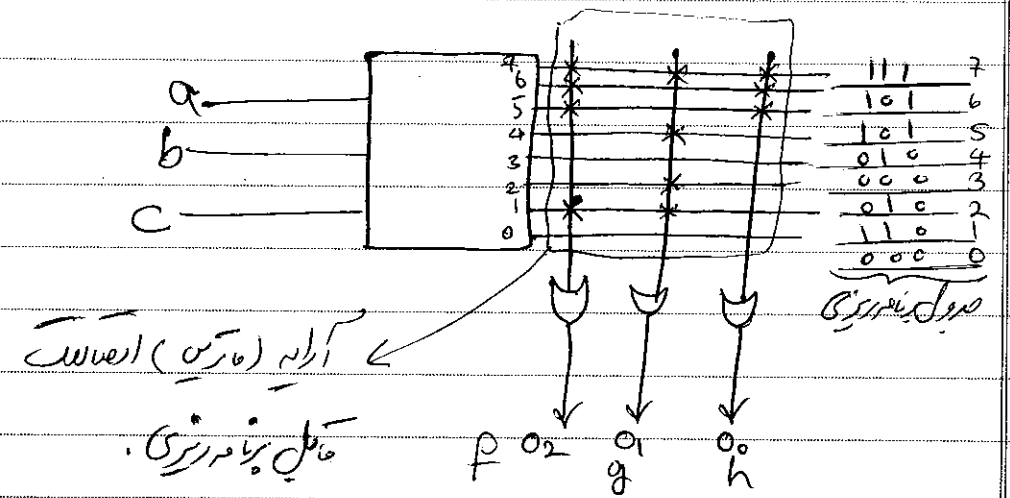 a
b
c
7
6
5
4
3
2
1
0
111 7
101 6
101 5
010 4
000 3
010 2
110 1
000 0
جدول برنامه‌ریزی
آرایه (ماتریس) اتصالات
قابل برنامه‌ریزی.
f O2 O1 O0
g h